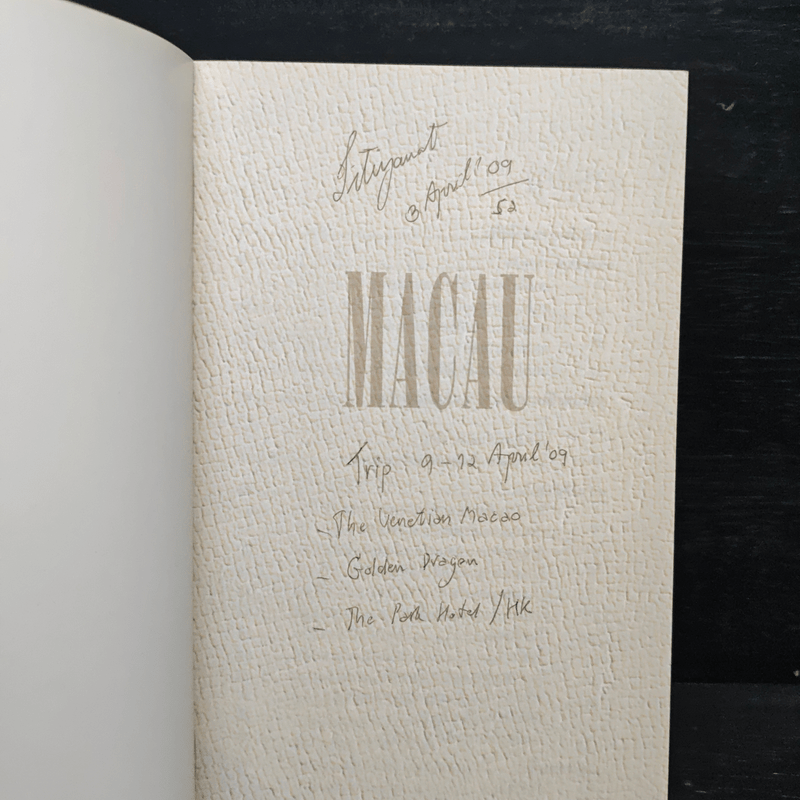 3 April '09
52
MACAU
Trip : 9-12 April '09
- The Venetian Macao
- Golden Dragon
- The Park Hotel / HK